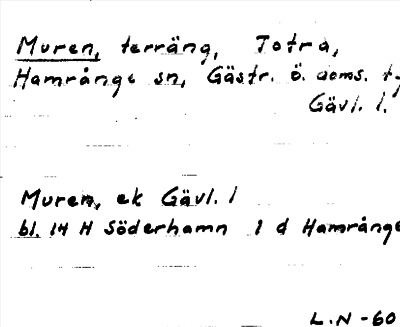 Muren, terräng, Totra,
Hamrånge sn, Gästr. ö. doms. t.,
Gävl. l.
Muren, ek Gävl. l
bl. 14 H Söderhamn 1 d Hamrånge
L.N -60